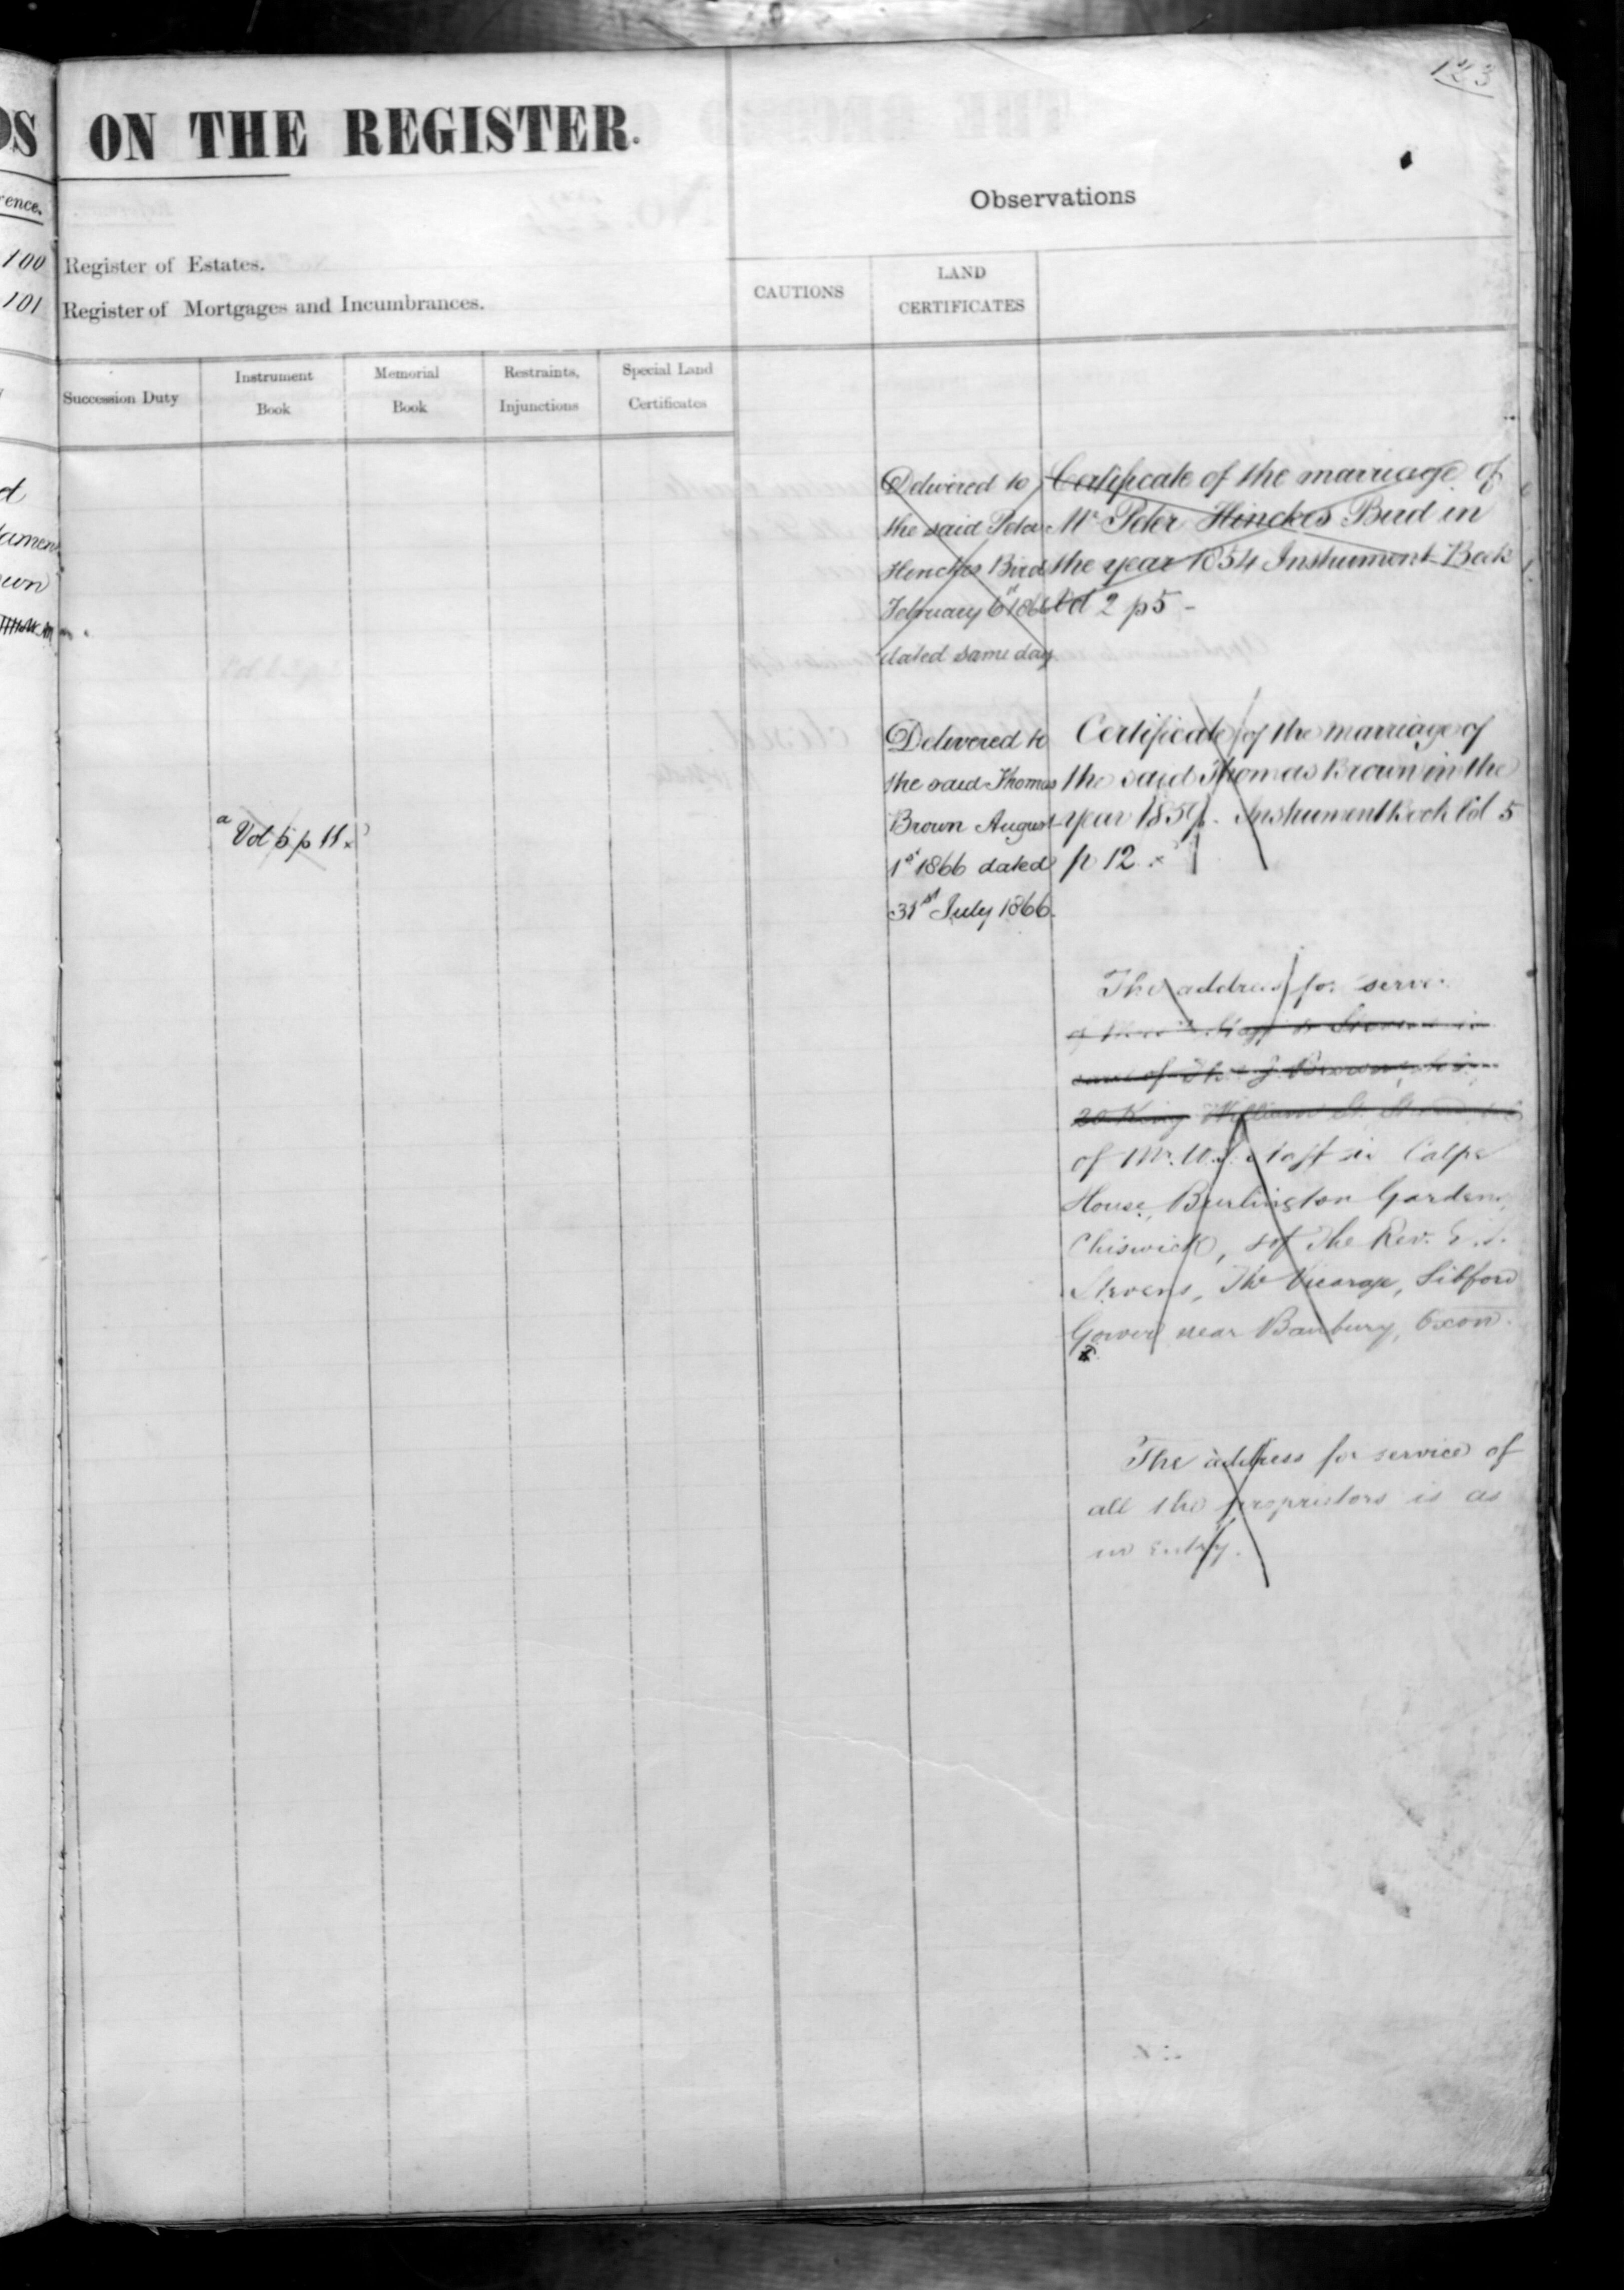 123
DS ON THE REGISTER.
rence.
Observations
100 Register of Estates.
101 Register of Mortgages and Incumbrances.
CAUTIONS
LAND
CERTIFICATES
Succession Duty
Instrument
Book
Memorial
Book
Restraints,
Injunctions
Special Land
Certificates
Delivered to
the said Peter
Hinckes Bird
February 6th 1866
dated same day.
Certificate of the marriage of
Mr Peter Hinckes Bird in
the year 1854 Instrument Book
Vol 2 p 5 -
a Vol 5 p 11 x
Delivered to
the said Thomas
Brown August
1st 1866 dated
31st July 1866.
Certificate of the marriage of
the said Thomas Brown in the
year 1859. Instrument Book Vol 5
p 12. x
The address for
of
care of Brown
20 King William St.
of Mr. in Calpe
House, Burlington Gardens,
Chiswick, & of The Rev.
Stevens, The Vicarage, Sibford
Gower near Banbury, Oxon.
The address for service of
all the proprietors is as
in entry.